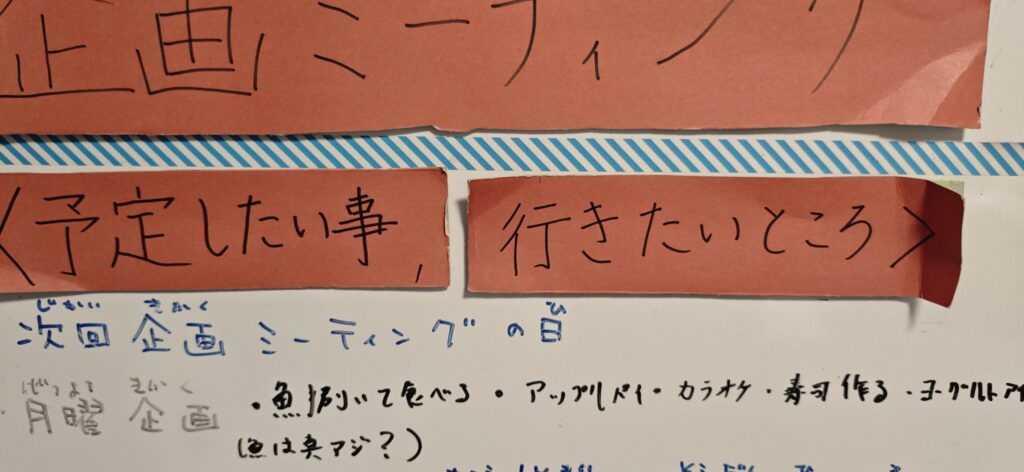 企画ミーティング
<予定したい事, 行きたいところ>
じかい きかく ひ
次回 企画 ミーティングの日
げつよう きかく
月曜 企画
・魚捌いて食べる ・アップルパイ・カラオケ・寿司作る・ヨーグルトアイ
(魚は真アジ?)